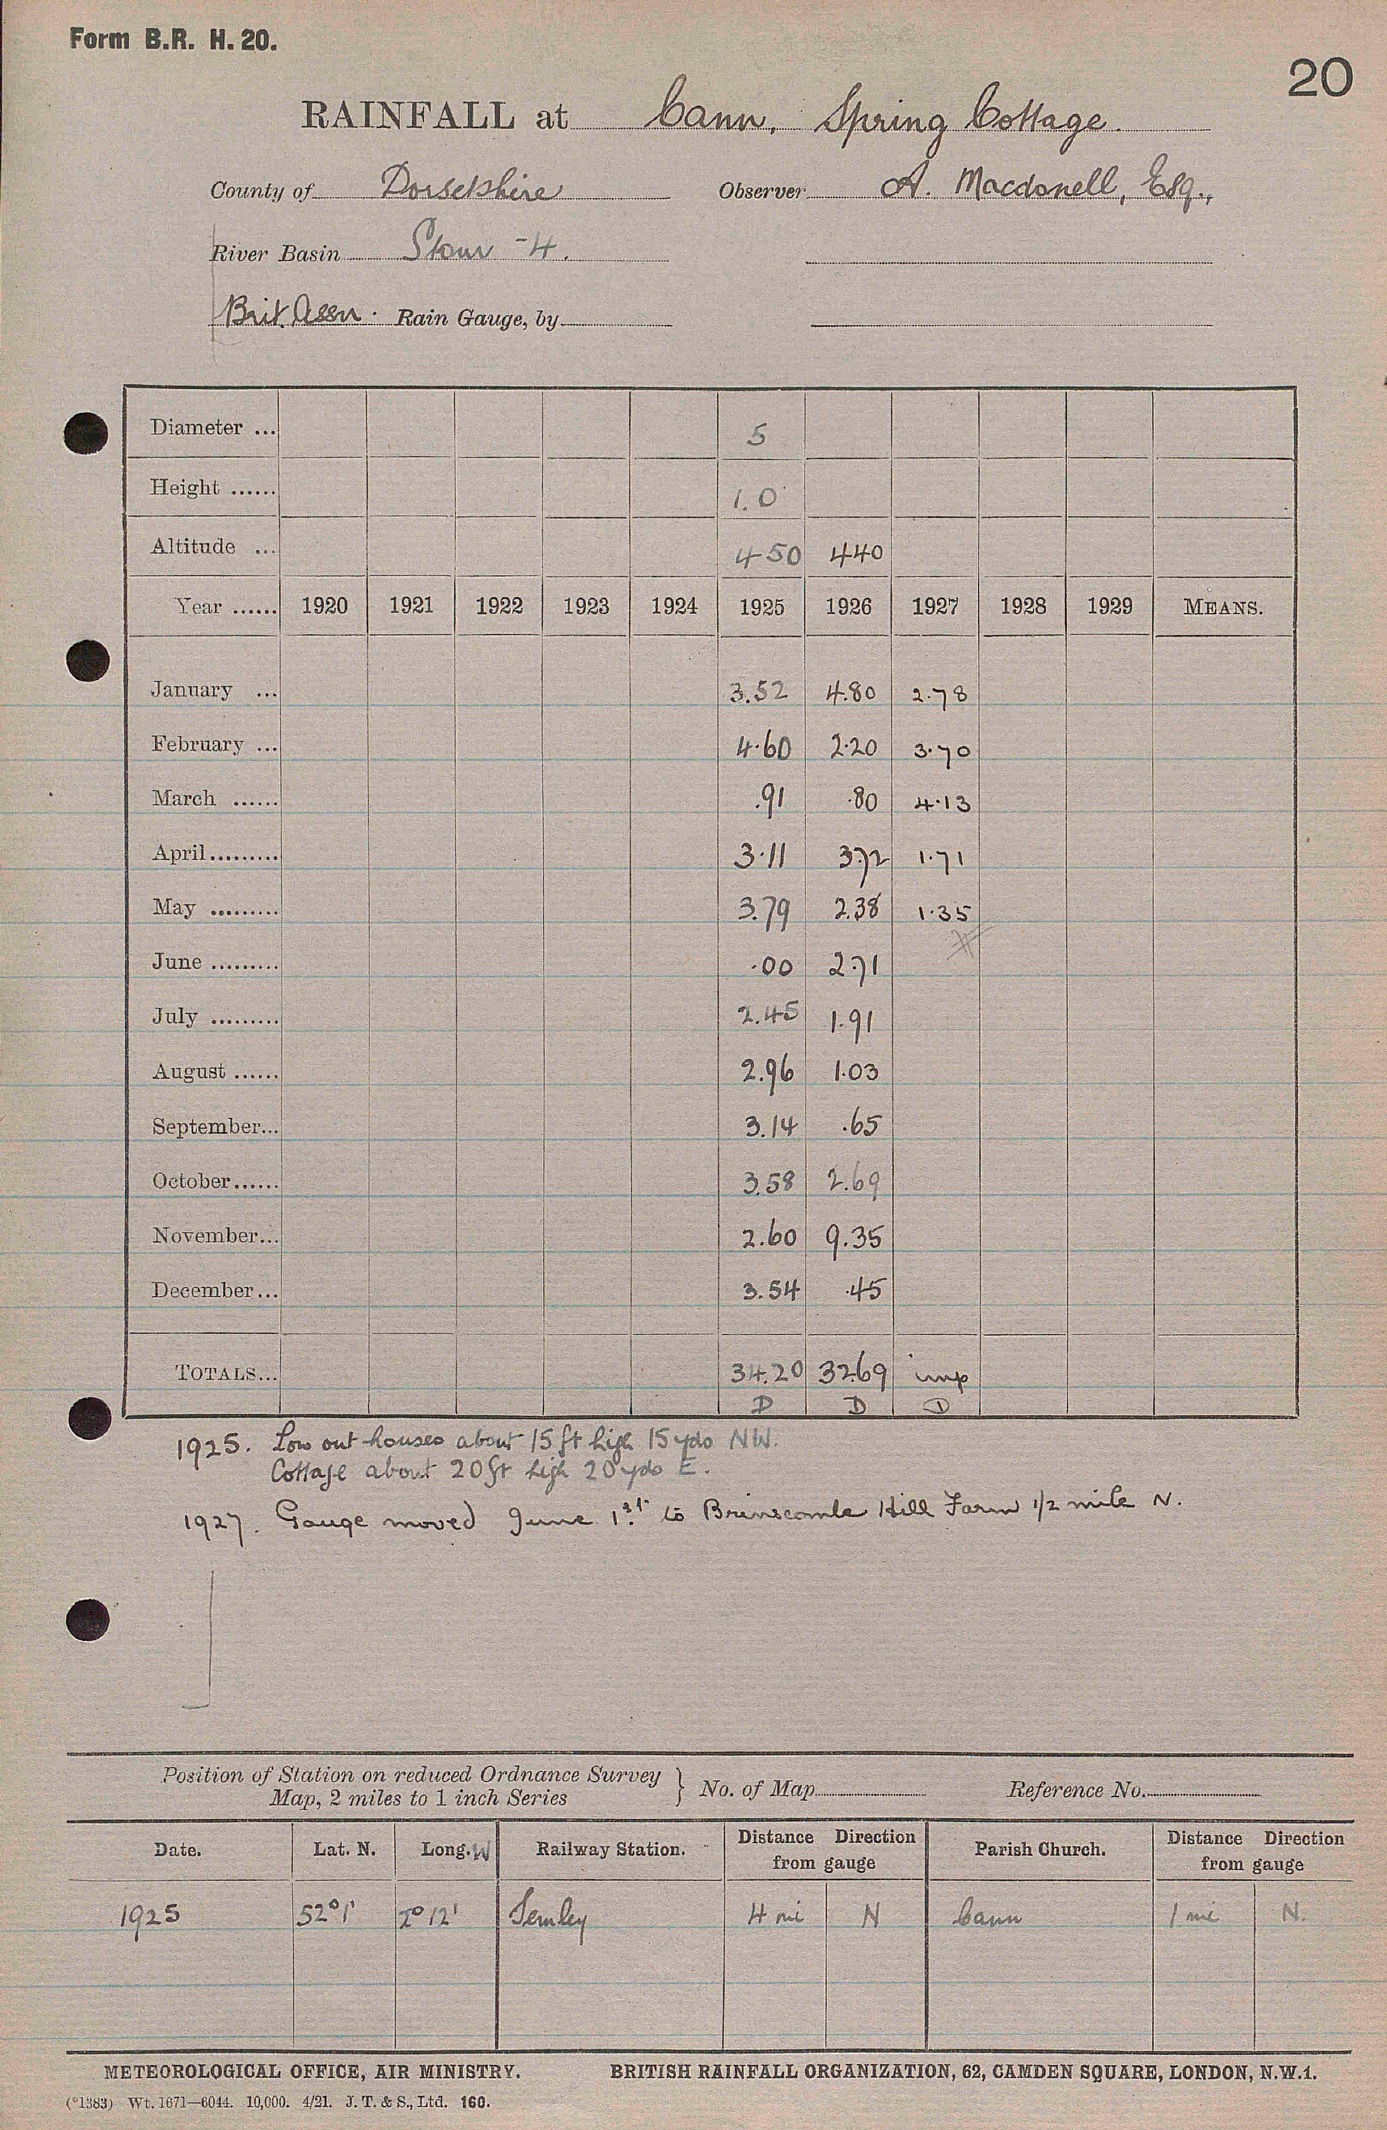 Form B.R. H. 20.
20
RAINFALL at Cann, Spring Cottage.
County of Dorsetshire Observer A. Macdonell, Esq.,
River Basin Stour -4.
Brit. Assn. Rain Gauge, by
Diameter ... 5
Height ...... 1.0
Altitude ... 450 440
Year ...... 1920 1921 1922 1923 1924 1925 1926 1927 1928 1929 MEANS.
January ... 3.52 4.80 2.78
February ... 4.60 2.20 3.70
March ...... .91 .80 4.13
April ......... 3.11 3.72 1.71
May ......... 3.79 2.38 1.35
June ......... .00 2.71
July ......... 2.45 1.91
August ...... 2.96 1.03
September... 3.14 .65
October...... 3.58 2.69
November... 2.60 9.35
December... 3.54 .45
TOTALS... 34.20 32.69 imp
D D D
1925. Low out houses about 15 ft high 15 yds NW.
Cottage about 20 ft high 20 yds E.
1927. Gauge moved June 1st to Brinscombe Hill Farm 1/2 mile N.
Position of Station on reduced Ordnance Survey
Map, 2 miles to 1 inch Series } No. of Map Reference No.
Date. Lat. N. Long. W Railway Station. Distance Direction from gauge Parish Church. Distance Direction from gauge
1925 52°1' 2°12' Semley 4 mi N Cann 1 mi N.
METEOROLOGICAL OFFICE, AIR MINISTRY. BRITISH RAINFALL ORGANIZATION, 62, CAMDEN SQUARE, LONDON, N.W.1.
(*1383) Wt. 1671—6044. 10,000. 4/21. J. T. & S., Ltd. 160.